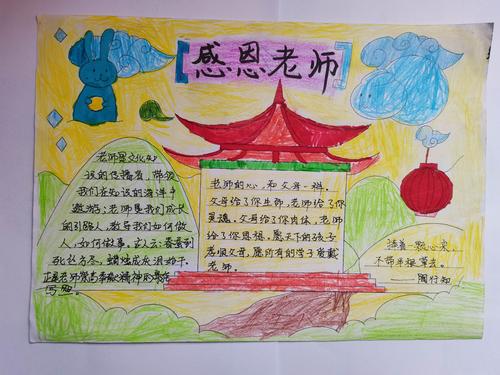 感恩老师
老师是文化知
识的传播者，带领
我们在知识的海洋中
遨游；老师是我们成长
的引路人，教导我们如何做
人，如何做事。古人云：春蚕到
死丝方尽，蜡炬成灰泪始干。
正是老师崇高奉献精神的真实
写照。
老师的心，和父母一样。
父母给了你生命，老师给了你
灵魂。父母给了你肉体，老师
给了你思想。愿天下的孩子
孝顺父母，愿所有的学子爱戴
老师。
捧着一颗心来，
不带半根草去。
——陶行知